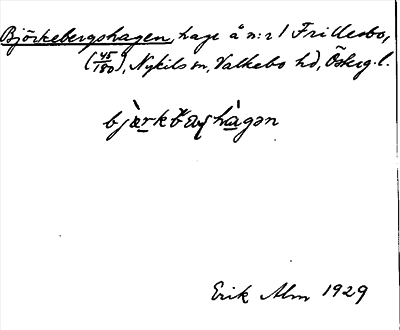 Björkebergshagen, hage å n:r 1 Frillesbo,
(45/180), Nykils sn, Valkebo hd, Österg. l.
bjärkbærhàgən
Erik Alm 1929